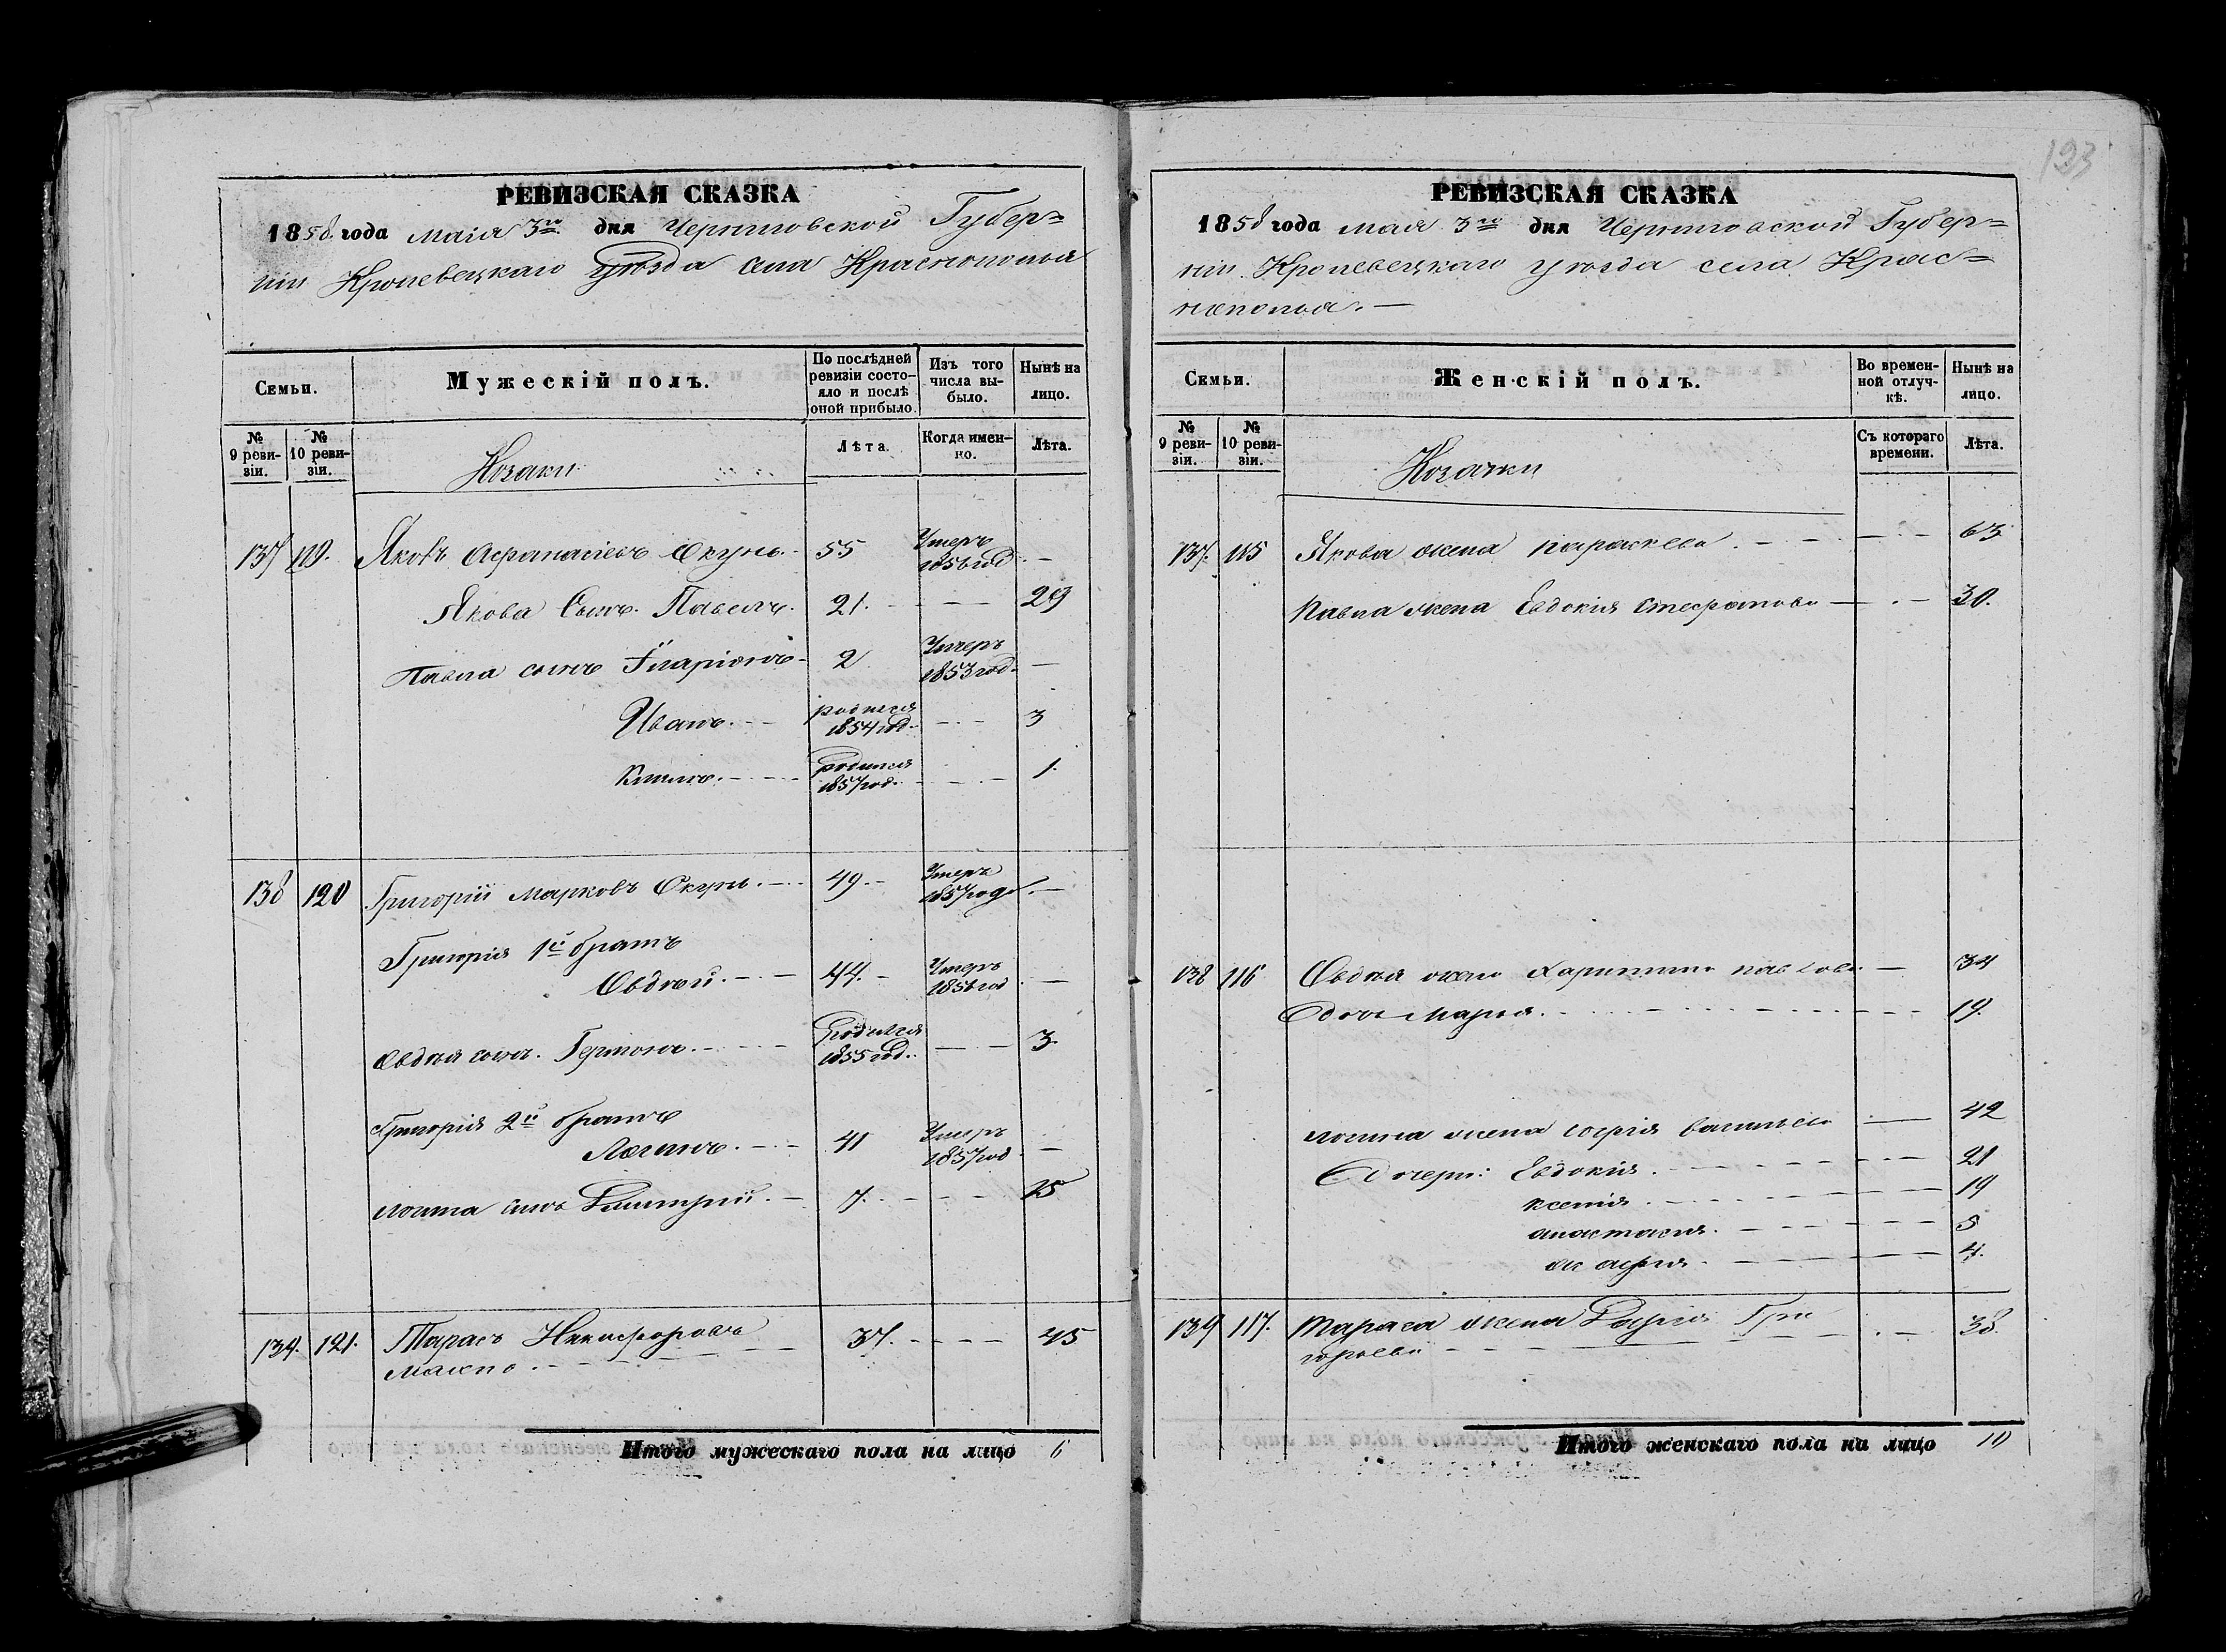 РЕВИЗСКАЯ СКАЗКА
1858 года Маія 3го дня Черниговской Губер=
ніи Кролевецкаго уѣзда села Краснополья
Семьи.
Мужескій полъ.
По послѣдней ревизіи состояло и послѣ оной прибыло.
Изъ того числа выбыло.
Нынѣ на лицо.
№ 9 ревизіи.
№ 10 ревизіи.
Козаки
Лѣта.
Когда именно.
Лѣта.
137 119. Яковъ Афанасіевъ Окунь 55 Умеръ 1856 год —
Якова Сынъ Павелъ 21. — 29
Павла сынъ Иларіонъ 2 Умеръ 1853 год —
Иванъ родился 1854 год — 3
Климъ родился 1857 год — 1.
138 120 Григорій Марковъ Окунь 49. Умеръ 1857 года —
Григорія 1й братъ
Овдѣй 44. Умеръ 1856 год —
Овдѣя сынъ Родился 1855 год — 3.
Григорія 2й братъ
Логинъ 41 Умеръ 1857 год —
Логина сынъ Дмитрій 7. — 15
139. 121. Тарасъ Никифоровъ 37. — 45
Итого мужескаго пола на лицо 6
123
РЕВИЗСКАЯ СКАЗКА
1858 года мая 3го дня Черниговской Губер=
ніи Кролевецкаго уѣзда села Крас=
нополья. —
Семьи.
Женскій полъ.
Во временной отлучкѣ.
Нынѣ на лицо.
№ 9 ревизіи.
№ 10 ревизіи.
Козачки
Съ котораго времени.
Лѣта.
137. 115 Якова жена Параскева — 63
Павла жена Евдокія Стефанова — 30.
138 116 Овдѣя жена Харитина Павлова — 34
Дочь Марья 19.
Логина жена Софія Васильева — 42
Дочери: Евдокія 21
Ксенія 19
Анастасия 5
4.
139 117. Тараса жена Дарія Гри
горьева 38.
Итого женскаго пола на лицо 10